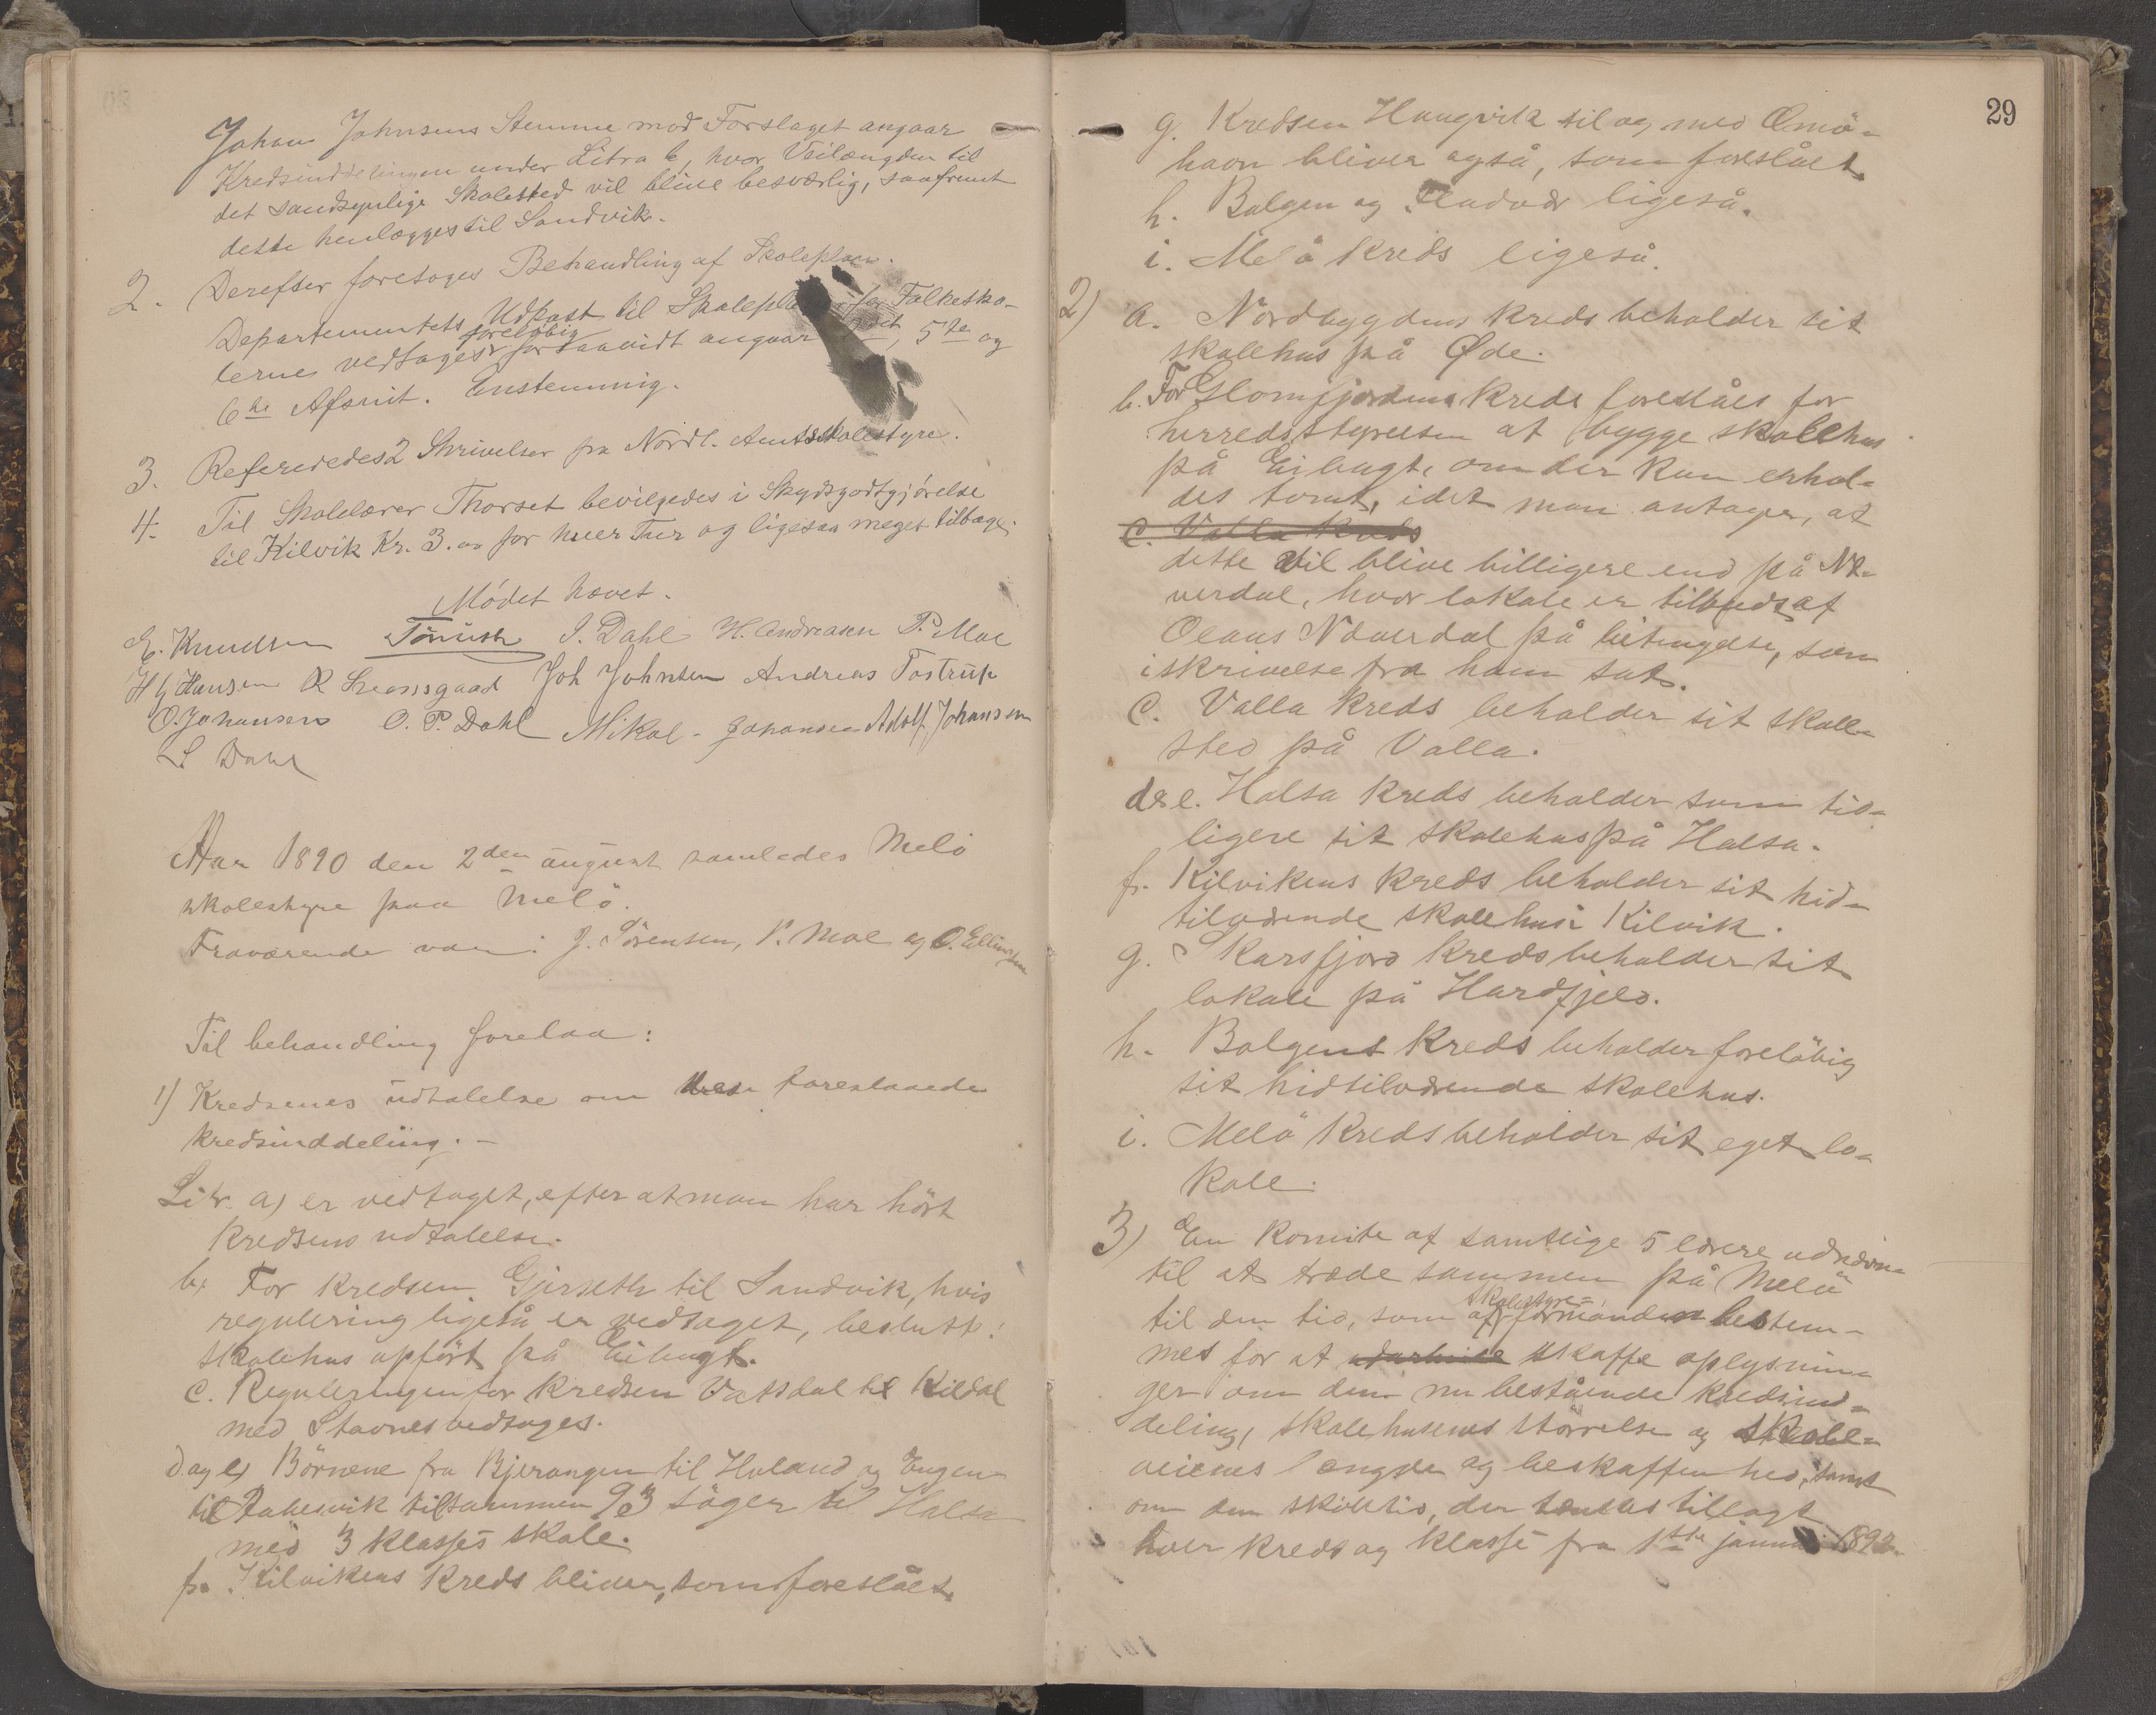 Johan Johnsens Stemme mod Forslaget angaar
Kredsinddelingen under Litra b, hvor Veilængden til
det sandsynlige Skolested vil blive besværlig, saafremt
dette henlægges til Sandvik.
2. Derefter foretoges Behandling af Skoleplan.
Departementets Udkast til Skoleplan for Folkesko-
lerne vedtages foreløbig forsaavidt angaar 5te og
6te Afsnit. Enstemmig.
3. Refereredes 2 Skrivelser fra Nordl. Amtsskolestyre.
4. Til Skolelærer Thorset bevilgedes i Skydsgodtgjörelse
til Kilvik Kr. 3.00 for hver Tur og ligesaa meget tilbage.
Mödet hævet.
E. Knudsen J. Dahl H. Andreasen P. Moe
H J Hansen Joh Johnsen Andreas Tostrup
O. Johansen O. P. Dahl Mikal Johansen Adolf Johansen
L Dahl
Aar 1890 den 2den august samledes Melö
skolestyre paa Melö.
Fraværende var: J. Sörensen, P. Moe og O. Ellingsen
Til behandling forelaa:
1) Kredsenes udtalelse om den foreslaaede
kredsinddeling. -
Litr. a) er vedtaget, efter at man har hört
kredsens udtalelse.
b. For kredsen Gjerseth til Sandvik, hvis
regulering ligeså er vedtaget, beslutt.
skolehus opfört på Eibugt.
c. Reguleringen for kredsen Vassdal til Kildal
med Stavnes vedtoges.
d og e) Börnene fra Bjerangen til Huland og Engen
til tilsammen 93 söger til Halsa
med 3 klasses skole.
f. Kilvikens kreds bliver, som foreslået.
29
g. Kredsen Haugvik til og med Æmö-
havn bliver også, som foreslået.
h. Bolgen og Fladvær ligeså.
i. Melö kreds ligeså.
2) a. Nordbygdens kreds beholder sit
skolehus på Øde.
b. For Glomfjordens kreds foreslåes for
herredsstyrelsen at bygge skolehus
på Eibugt, om der kan erhol-
des tomt, idet man antager, at
c. Valla kreds
dette vil blive billigere end på Nä-
verdal, hvor lokale er tilbuds af
Olaus Näverdal på betingelse, som
i skrivelse fra ham sat.
c. Valla kreds beholder sit skole-
sted på Valla.
d & e. Halsa kreds beholder som tid-
ligere sit skolehus på Halsa.
f. Kilvikens kreds beholder sit hid-
tilværende skolehus i Kilvik.
g. Skarsfjord kreds beholder sit
lokale på Hardfjeld.
h. Bolgens kreds beholder foreløbig
sit hidtilværende skolehus.
i. Melö kreds beholder sit eget lo-
kale.
3) En komite af samtlige 5 lærere udnævn-
til at træde sammen på Melö
til den tid, som af skolestyre-
formanden bestem-
mes for at skaffe oplysnin-
ger om den nu bestående kredsind-
deling, skolehusenes störrelse og skole-
veienes længde og beskaffenhed, samt
om den skoletid, der tænkes tillagt
hver kreds og klasse fra 1ste januar 1892.